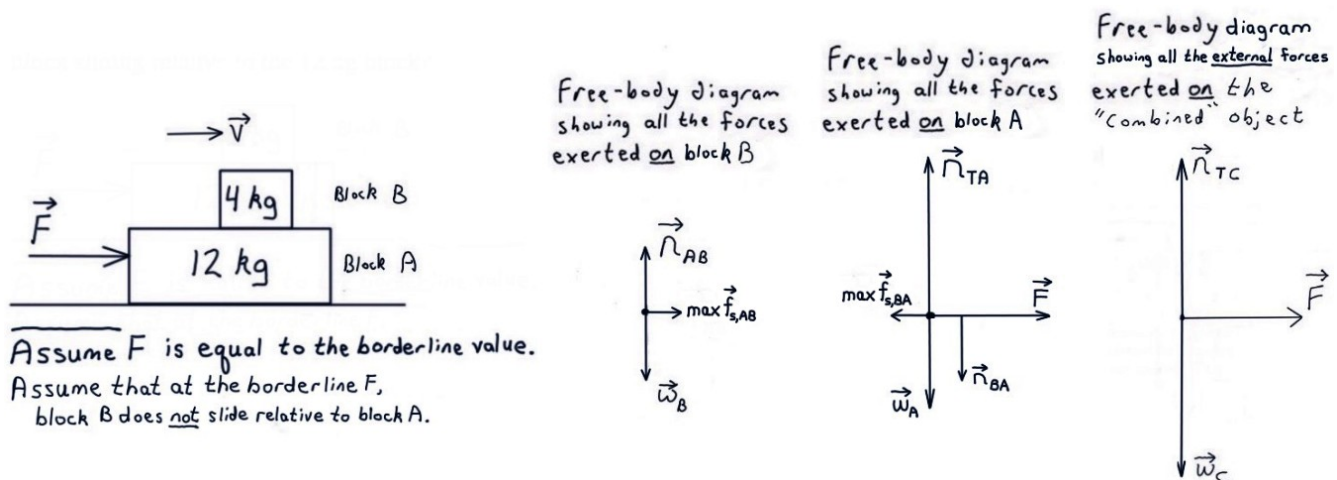 → v⃗
F⃗
4 kg
Block B
12 kg
Block A
Assume F is equal to the borderline value.
Assume that at the borderline F,
block B does not slide relative to block A.
Free-body diagram
showing all the forces
exerted on block B
n⃗ AB
max f⃗ s,AB
w⃗ B
Free-body diagram
showing all the forces
exerted on block A
n⃗ TA
max f⃗ s,BA
F⃗
n⃗ BA
w⃗ A
Free-body diagram
showing all the external forces
exerted on the
"Combined" object
n⃗ TC
F⃗
w⃗ C